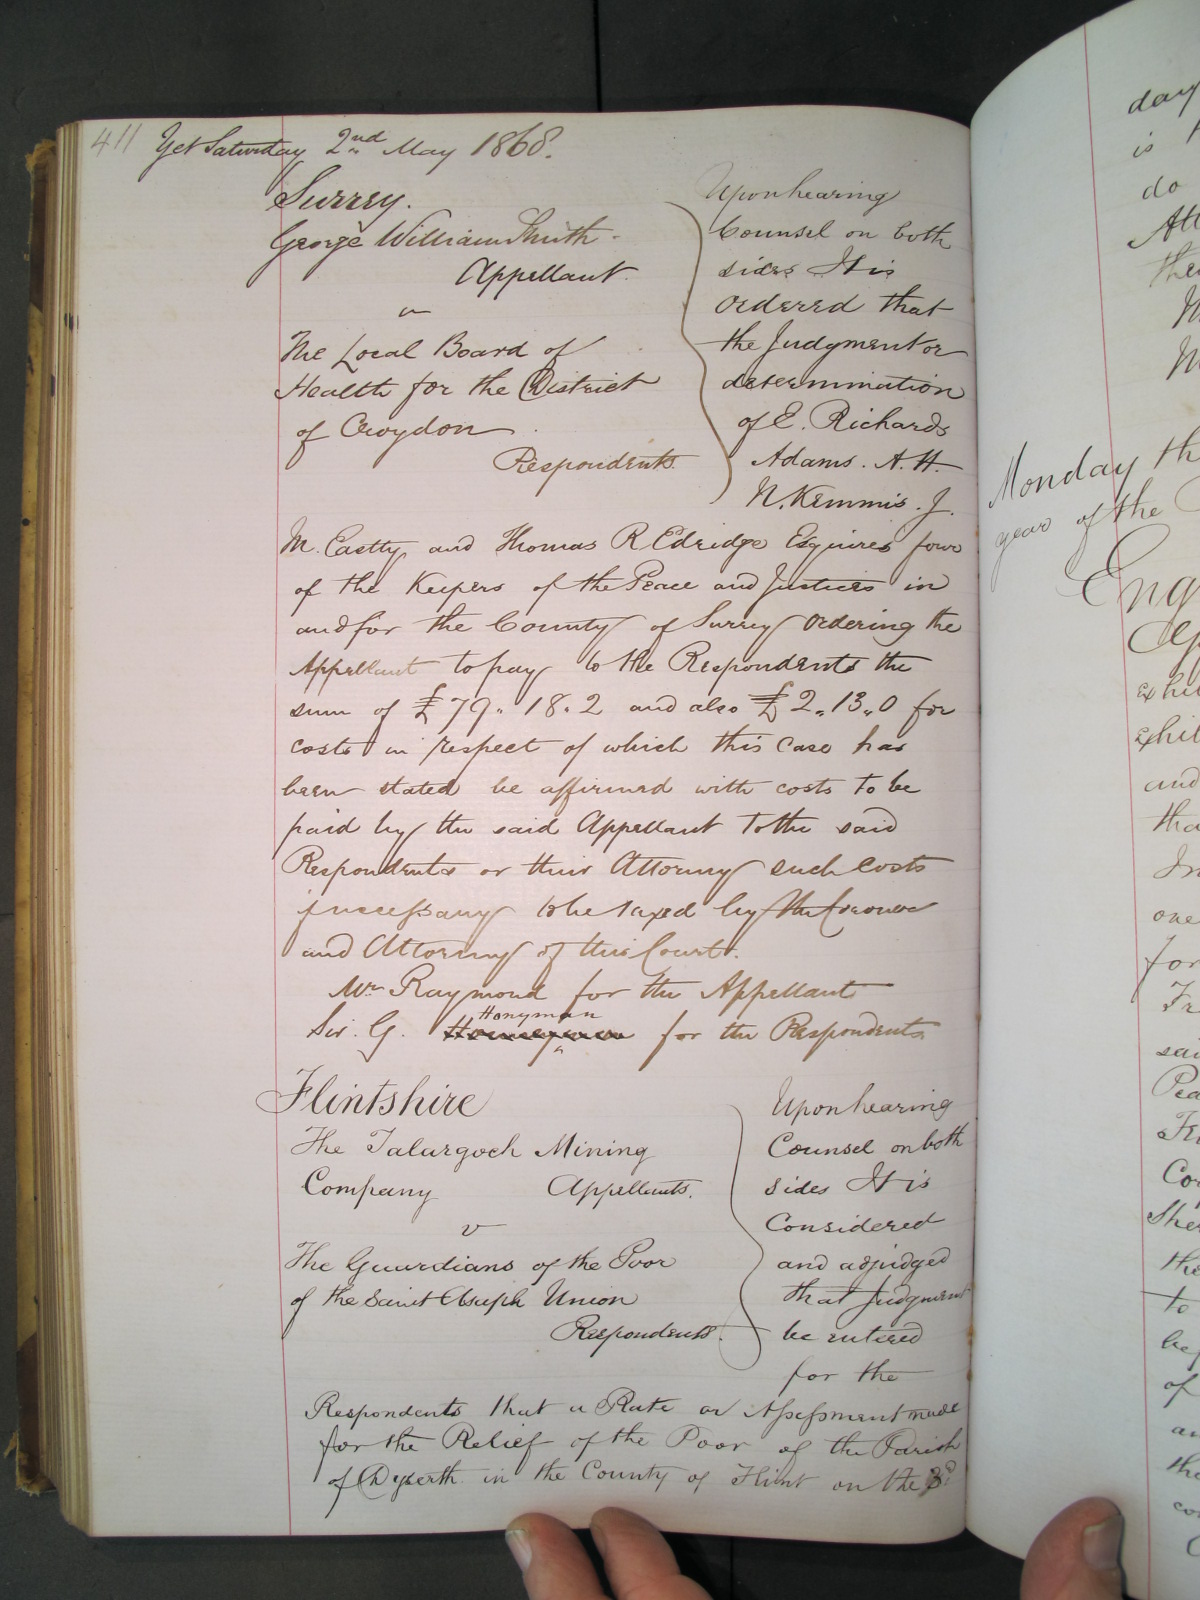 411 Yet Saturday 2nd May 1868.
Surrey.
George William Smith
Appellant
v
The Local Board of
Health for the District
of Croydon
Respondents
Upon hearing
Counsel on both
sides It is
Ordered that
the Judgment or
determination
of E. Richards
Adams. A. H.
N. Kemmis. J.
M. Eastty and Thomas R Edridge Esquires four
of the Keepers of the Peace and Justices in
and for the County of Surrey Ordering the
Appellant to pay to the Respondents the
sum of £79. 18. 2 and also £2. 13. 0 for
costs in respect of which this Case has
been stated be affirmed with costs to be
paid by the said Appellant to the said
Respondents or their Attorney such Costs
if necessary to be taxed by the Coroner
and Attorney of this Court.
Mr Raymond for the Appellant
Honyman
Sir. G. for the Respondents
Flintshire
The Talargoch Mining
Company Appellants.
v
The Guardians of the Poor
of the Saint Asaph Union
Respondents.
Upon hearing
Counsel on both
sides It is
Considered
and adjudged
that Judgment
be entered
for the
Respondents that a Rate or Assessment made
for the Relief of the Poor of the Parish
of Dyserth in the County of Flint on the 3d
day
is
do
Monday th
year of the
Eng
exhi
exhi
and
tha
In
one
for
Fr
sai
Pea
Co
She
the
to
bef
of
an
the
co